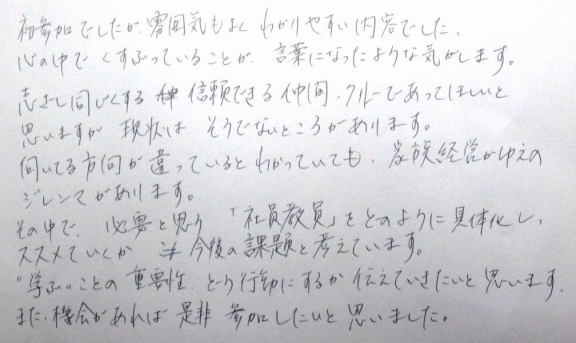 初参加でしたが、雰囲気もよくわかりやすい内容でした。
心の中でくすぶっていることが、言葉になったような気がします。
志さし同じくする 信頼できる仲間、クルーであってほしいと
思いますが 現状は そうでないところがあります。
向いてる方向が違っているとわかっていても、家族経営がゆえの
ジレンマがあります。
その中で、必要と思う「社員教員」をどのように具体化し、
ススメていくか 今後の課題と考えています。
"学ぶ"ことの重要性、どう行動にするか 伝えていきたいと思います。
また、機会があれば是非 参加したいと思いました。